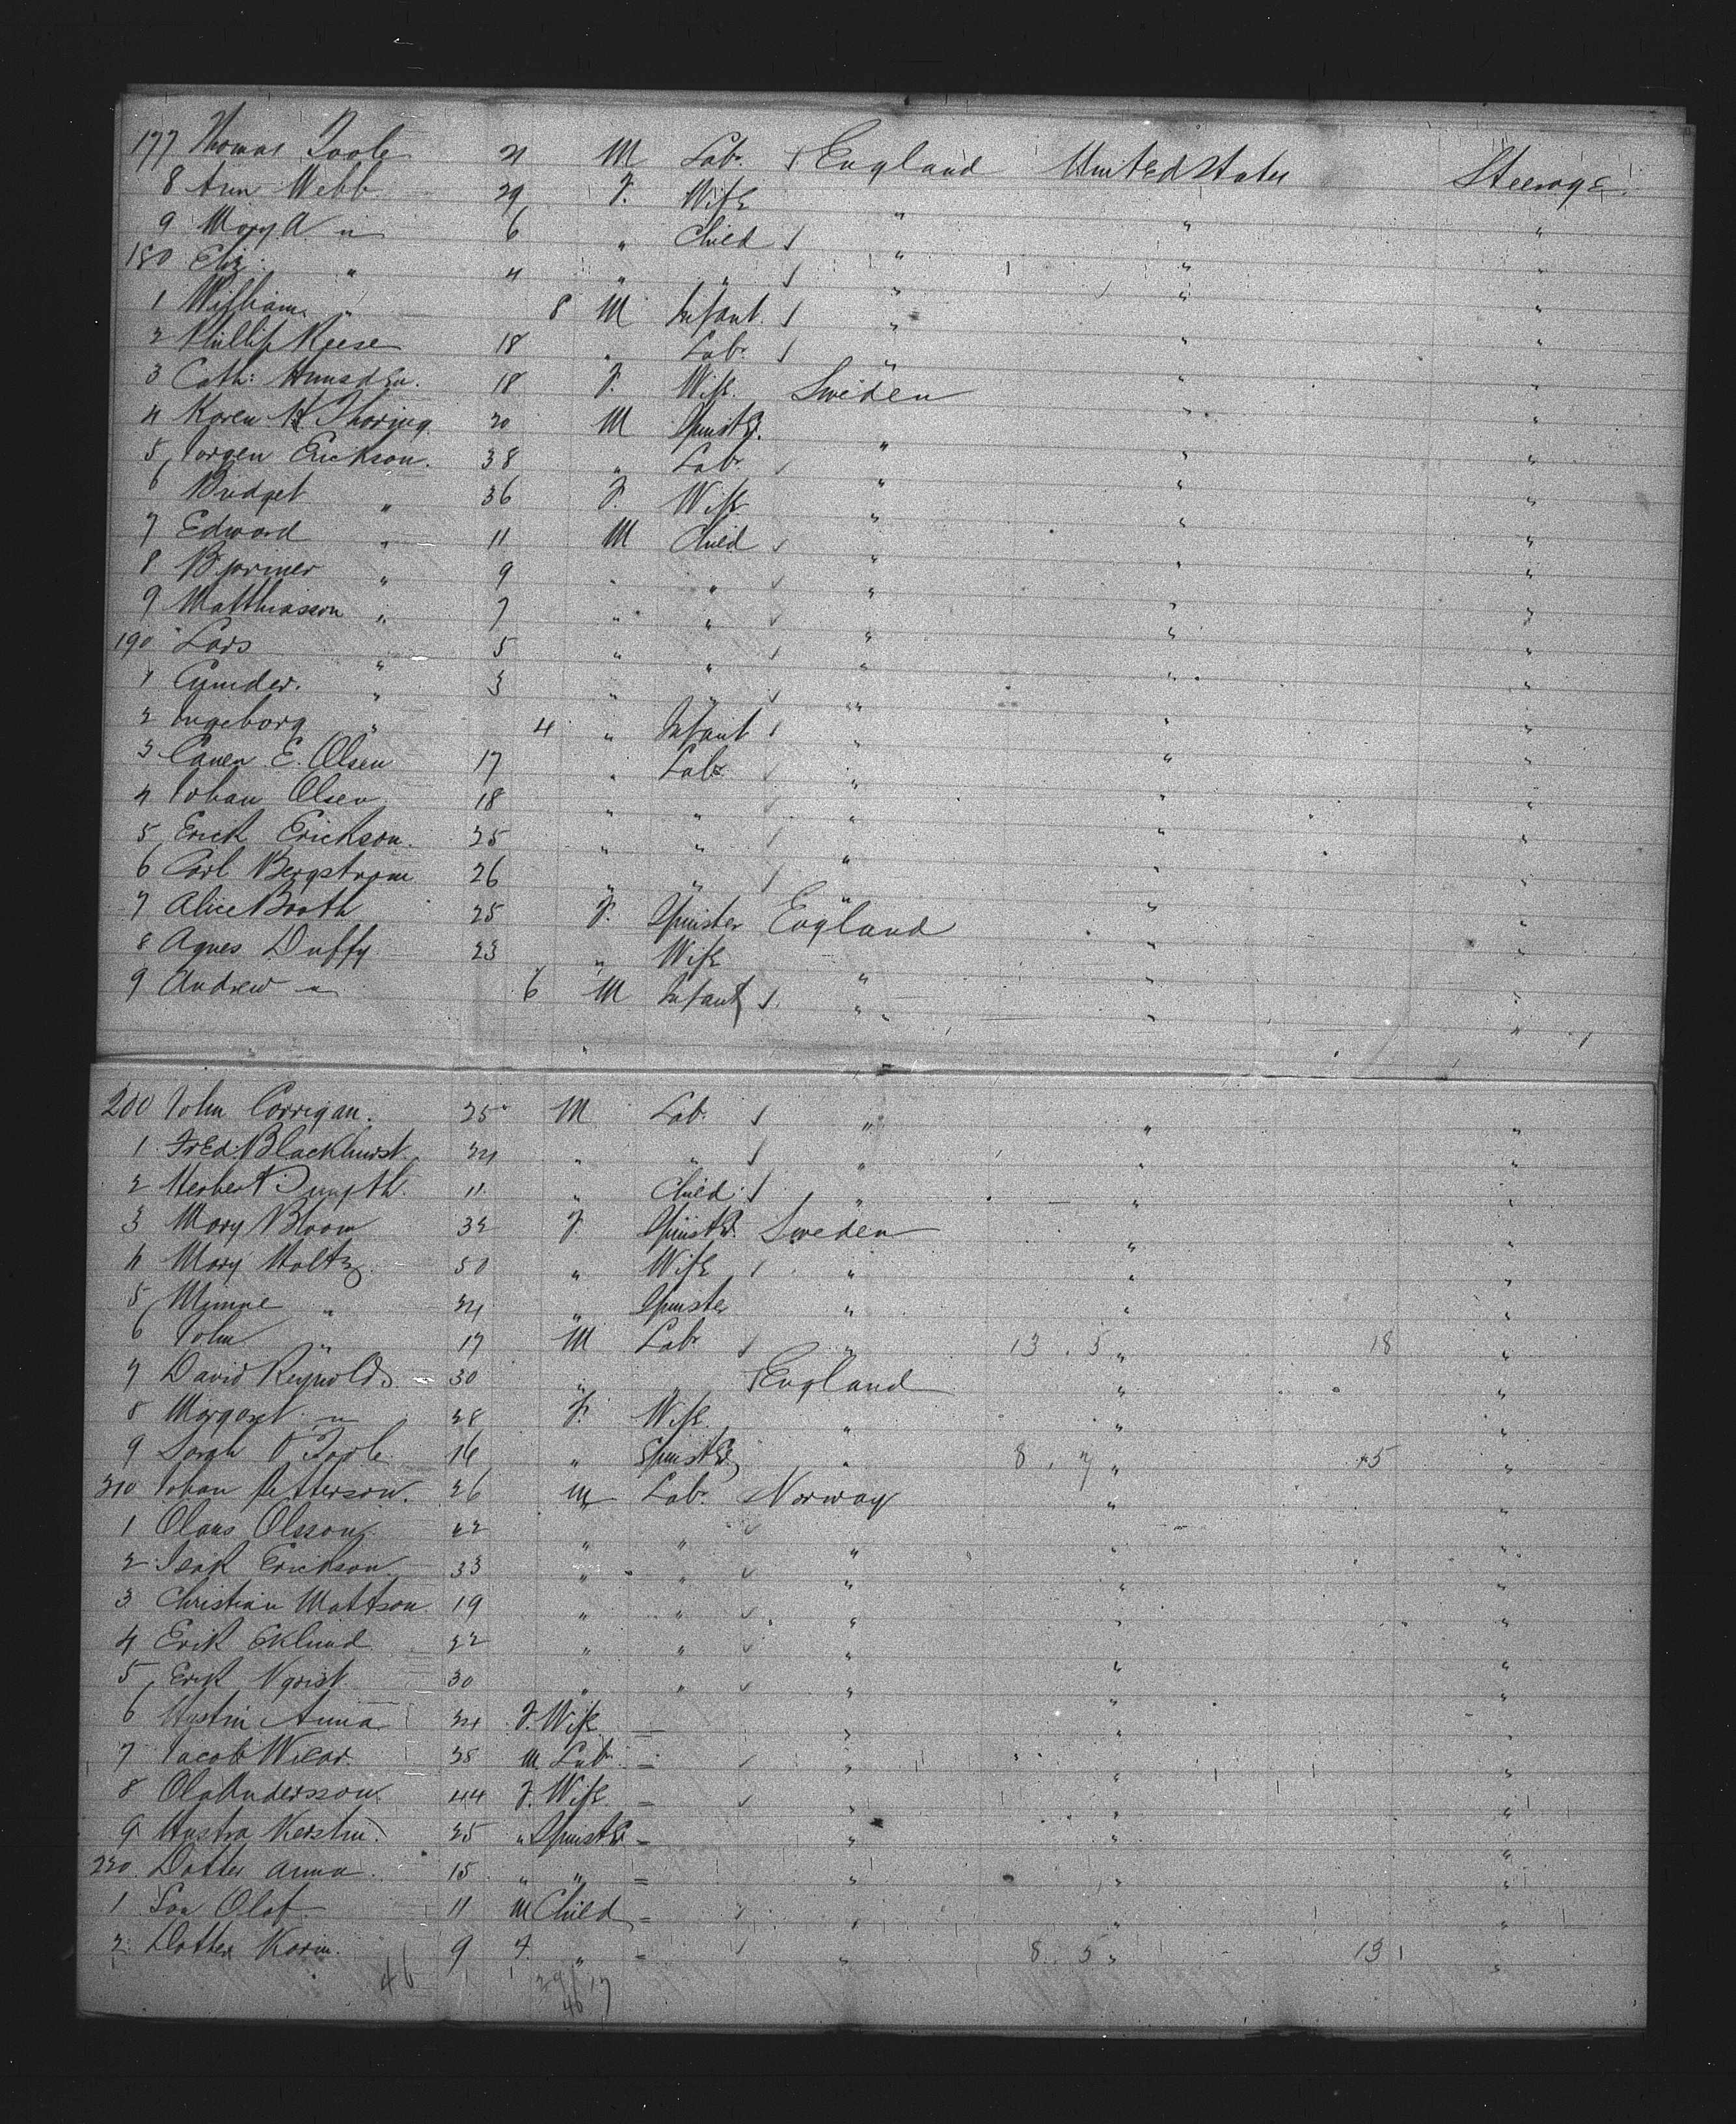 177 Thomas Toole 21 M Lab. England United States Steerage
8 Ann Webb 29 F. Wife " " "
9 Mary A " 6 " Child " " "
180 Eliz: " 4 " " " " "
1 William " 8 M Infant. " " "
2 Phillip Reese 18 " Lab. " " "
3 Cath: 18 F. Wife. Sweden " "
4 Karen K Thoring 20 M Spinster. " " "
5 Jorgen Erickson. 38 " Lab. " " "
6 Bridget " 36 F. Wife " " "
7 Edward " 11 M Child " " "
8 " 9 " " " " "
9 Matthiasson " 7 " " " " "
190 Lars " 5 " " " " "
1 " 3 " " " " "
2 Ingeborg " 4 " Infant " " "
3 E. Olsen 17 " Lab. " " "
4 Johan Olsen 18 " " " " "
5 Erick Erickson. 25 " " " " "
6 Carl Bergstrom 26 " " " " "
7 Alice Booth 25 F. Spinster England " "
8 Agnes Duffy 23 " Wife " " "
9 Andrew " 6 M Infant " " "
200 John Corrigan. 25 M Lab. " " "
1 Fred: Blackhurst. 24 " " " " "
2 Herbert 11 " Child " " "
3 Mary Bloom 32 F. Spinster. Sweden " "
4 Mary Holtz 50 " Wife " " "
5 Minnie " 24 " Spinster " " "
6 John " 17 M Lab. " 13. 5 " 18 "
7 David Reynolds 30 " " England " "
8 Margaret " 28 F. Wife. " " "
9 Sarah O Toole 16 " Spinster " 8. 7 " 15 "
210 Johan Petterson. 26 M Lab. Norway " "
1 Olaus Olsson 22 " " " " "
2 Isak Erickson 33 " " " " "
3 Christian Mattson. 19 " " " " "
4 Erik Eklund 22 " " " " "
5 Erik Nqvist 30 " " " " "
6 Hustru Anna 24 F. Wife " " "
7 Jacob 38 M. Lab. " " "
8 Ola Andersson 44 F. Wife " " "
9 Hustra Kerstin. 25 " Spinster " " "
220 Dotter Anna. 15 " " " " "
1 Son Olof 11 M Child " " "
2 Dotter Karin. 9 F. " " 8. 5 " 13 "
46 29 17
46